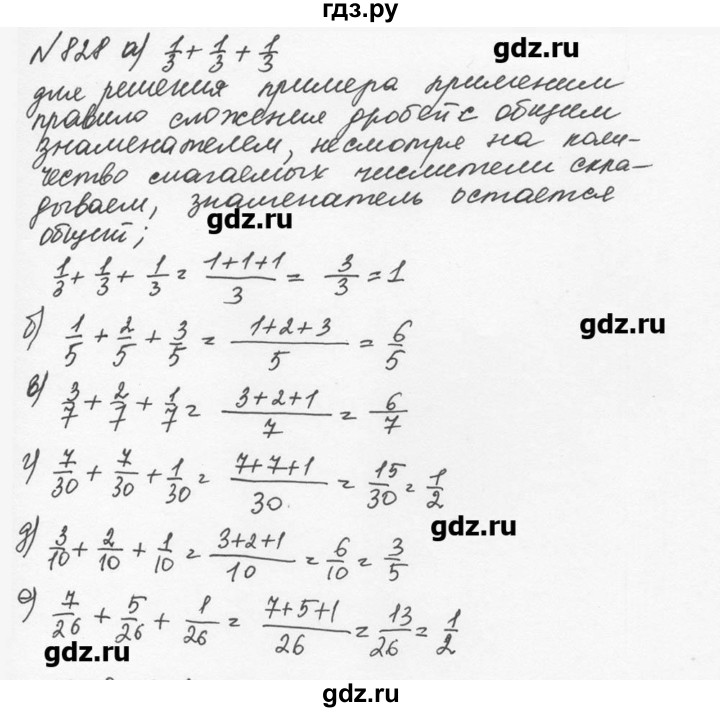 гдз.ру
№828 а) 1/3 + 1/3 + 1/3
gdz.ru
для решения примера применим
правило сложения дробей с общим
знаменателем, несмотря на коли-
чество слагаемых числители скла-
дываем, знаменатель остается
gdz.ru
общий;
1/3 + 1/3 + 1/3 = (1+1+1)/3 = 3/3 = 1
б) 1/5 + 2/5 + 3/5 = (1+2+3)/5 = 6/5
gdz.ru
в) 3/7 + 2/7 + 1/7 = (3+2+1)/7 = 6/7
г) 7/30 + 7/30 + 1/30 = (7+7+1)/30 = 15/30 = 1/2
gdz.ru
д) 3/10 + 2/10 + 1/10 = (3+2+1)/10 = 6/10 = 3/5
е) 7/26 + 5/26 + 1/26 = (7+5+1)/26 = 13/26 = 1/2
gdz.ru
gdz.ru